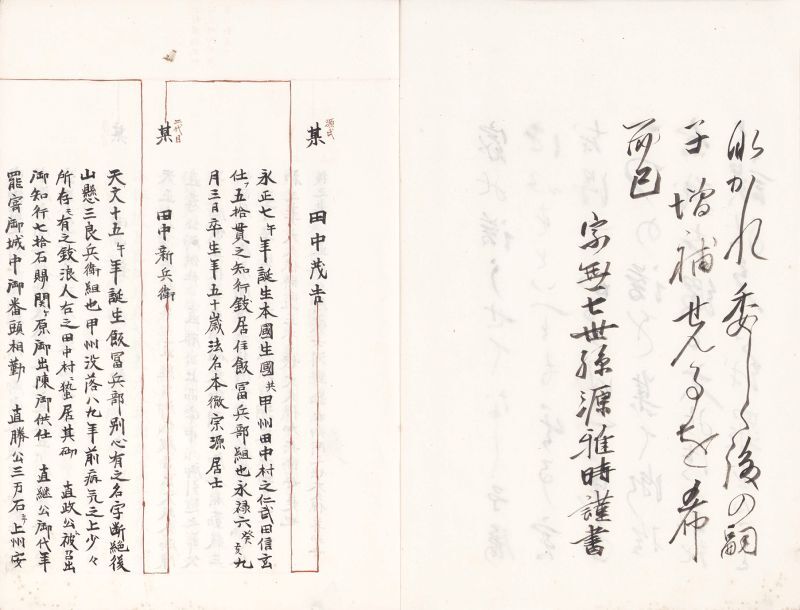 永かれ委しく後の嗣
子増補せん事を希
而已
宗無七世孫源雅時謹書
源氏
某 田中茂吉
永正七午年誕生本國生國共甲州田中村之仁武田信玄
仕ヘ五拾貫之知行致居住飯冨兵部組也永禄六癸亥九
月三日卒生年五十歳法名本徹宗源居士
二代目
某 田中新兵衛
天文十五午年誕生飯冨兵部別心有之名字断絶後
山懸三良兵衛組也甲州没落八九年前病気之上少々
所存有之致浪人右之田中村蟄居其砌 直政公被召出
御知行七拾石賜関ヶ原御出陳御供仕 直継公御代年
罷寄御城中御番頭相勤 直勝公三万石ニ而上州安